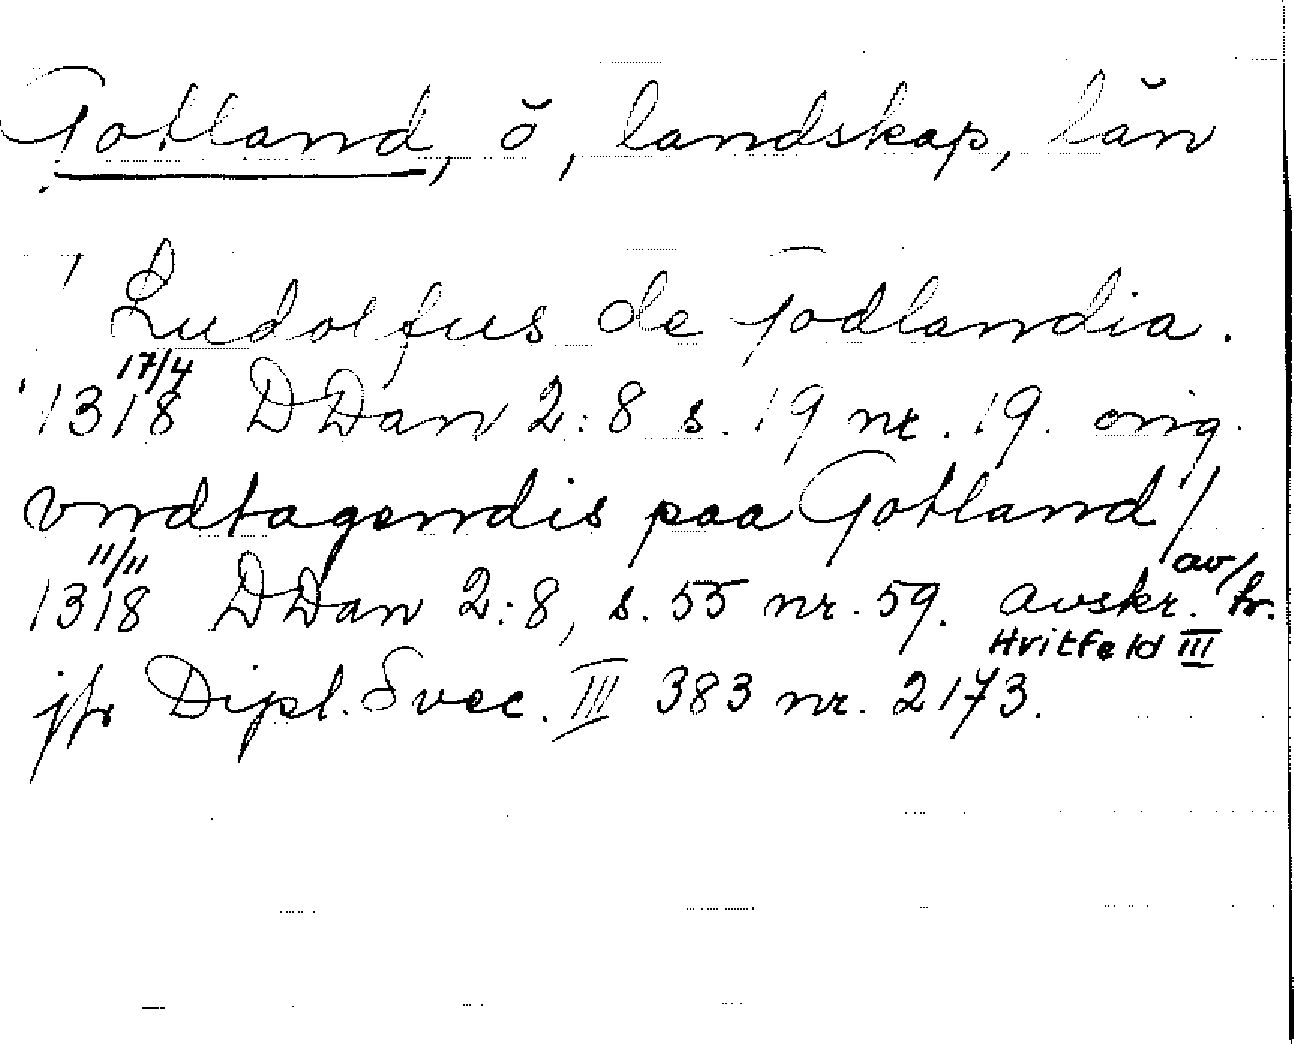 Gotland, ö, landskap, län
Ludolfus de Godlandia.
17/4
1318 DDan 2:8 s. 19 nr. 19. orig.
vndtagendis paa Gotland/
11/11
1318 DDan 2:8, s. 55 nr. 59. avskr. av/tr.
Hvitfeld III
jfr Dipl. Svec. III 383 nr. 2173.